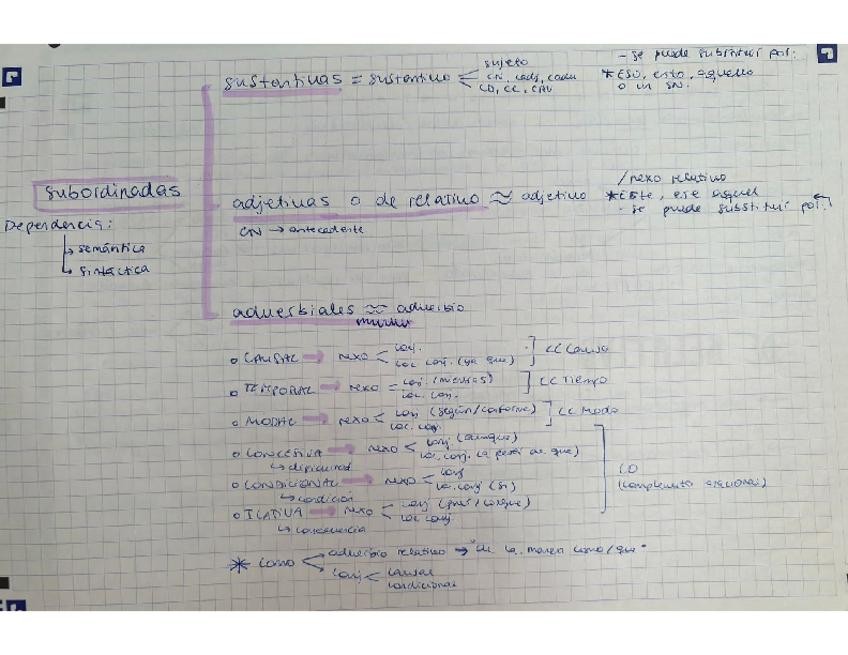 sustantivas = sustantivo
sujeto
CN, cadj, cadv
CD, CC, CAV
- se puede substituir por:
* ESO, esto, aquello
o un SN.
subordinadas
Dependencia:
semántica
sintáctica
adjetivas o de relativo ≈ adjetivo
/nexo relativo
* Este, ese aquel
- se puede substituir por:
CN → antecedente
adverbiales ≈ adverbio
o CAUSAL → nexo < conj.
loc. conj. (ya que) ] CC Causa
o TEMPORAL → nexo = conj. (mientras)
loc. conj. ] CC Tiempo
o MODAL → nexo < conj (según/conforme)
loc. conj. ] CC Modo
o CONCESIVA → nexo < conj. (aunque)
loc. conj. (a pesar de que)
↳ dificultad
o CONDICIONAL → nexo < conj
loc. conj (si)
↳ condición
CO
(complemento oracional)
o ILATIVA → nexo < conj (pues/conque)
loc conj.
↳ consecuencia
* como < adverbio relativo → "de la manera como/que"
conj < causal
condicional